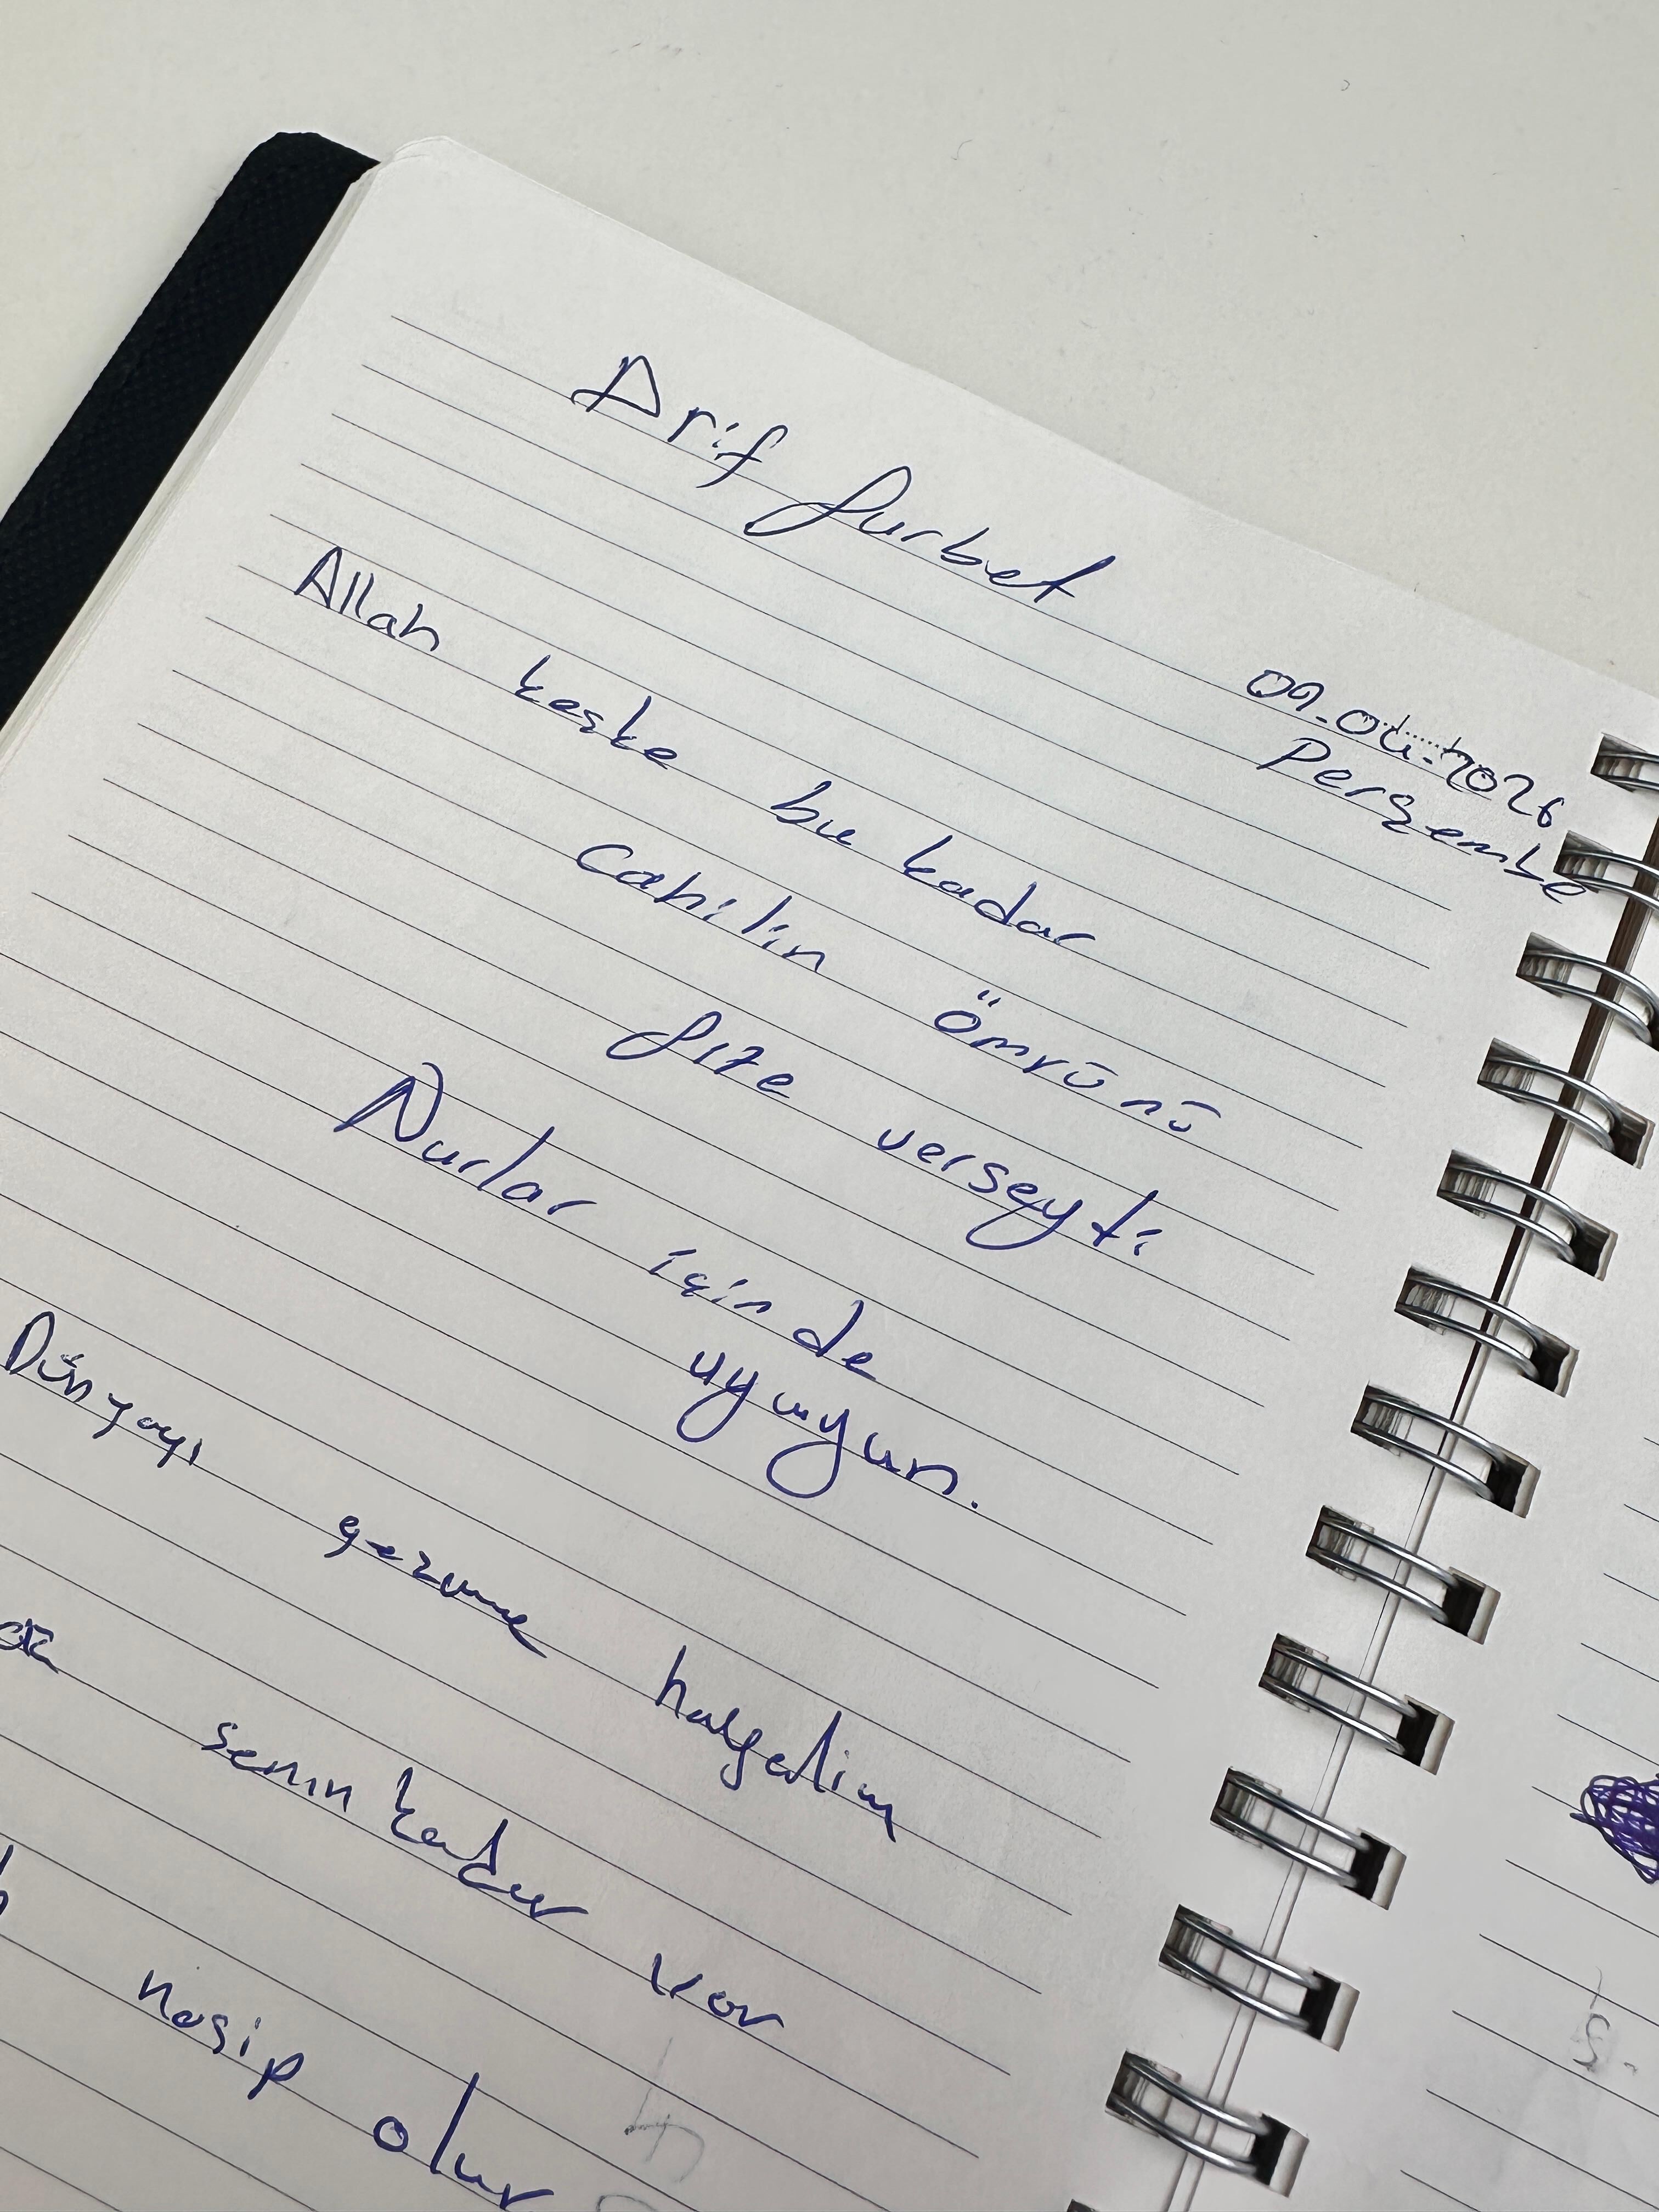 Arif Gurbet
09.04.2026
Perşembe
Allah keşke bu kadar
cahilin ömrünü
size verseydi
Nurlar içinde
uyuyun.
Dünyayı gezme hayalim
senin kadar var
nasip olur